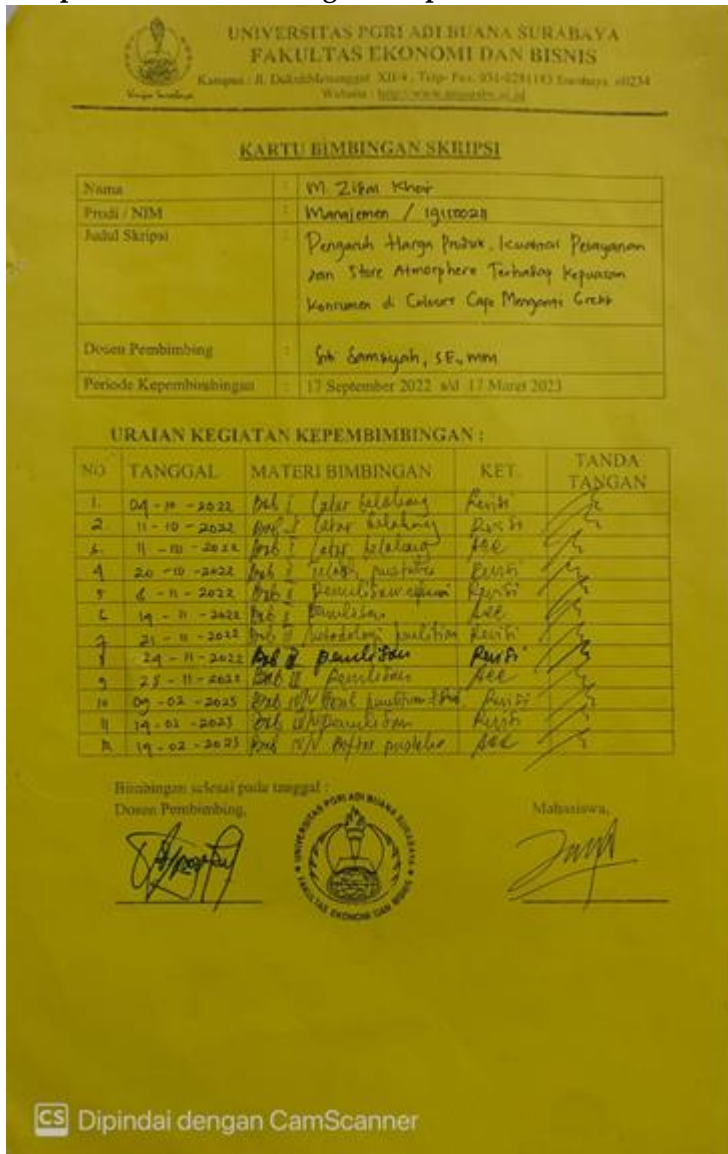 UNIVERSITAS PGRI ADI BUANA SURABAYA
FAKULTAS EKONOMI DAN BISNIS
Kampus : Jl. Dukuh Menanggal XII/4, Telp- Fax. 031-8281183 Surabaya 60234
Website :
KARTU BIMBINGAN SKRIPSI
Nama : M Zifni Khoir
Prodi / NIM : Manajemen /
Judul Skripsi : Pengaruh Harga Produk, Pelayanan
dan Store Atmosphere Terhadap Kepuasan
Konsumen di Colours Cafe Menganti
Dosen Pembimbing : Siti Samsiyah, SE., MM
Periode Kepembimbingan : 17 September 2022 s/d 17 Maret 2023
URAIAN KEGIATAN KEPEMBIMBINGAN :
NO TANGGAL MATERI BIMBINGAN KET. TANDA TANGAN
1. 04 - 10 - 2022 Bab I latar belakang Revisi
2 11 - 10 - 2022 Bab I latar belakang Revisi
3. 11 - 10 - 2022 Bab I latar belakang Acc
4 20 - 10 - 2022 Bab II pustaka Revisi
5 8 - 11 - 2022 Bab Revisi
6 14 - 11 - 2022 Bab Penulisan Acc
7 21 - 11 - 2022 Bab metodologi penelitian Revisi
8 24 - 11 - 2022 Bab penulisan Revisi
9 28 - 11 - 2022 Bab Penulisan Acc
10 09 - 02 - 2023 Bab IV/V Hasil penelitian Revisi
11 14 - 02 - 2023 Bab IV/V penulisan Revisi
12 19 - 02 - 2023 Bab IV/V Daftar pustaka Acc
Bimbingan selesai pada tanggal :
Dosen Pembimbing, Mahasiswa,
UNIVERSITAS PGRI ADI BUANA SURABAYA
FAKULTAS EKONOMI DAN BISNIS
CS Dipindai dengan CamScanner